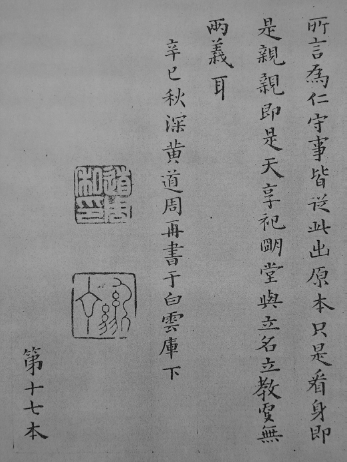 所言為仁守事皆從此出原本只是看身即
是親親即是天享祀明堂與立名立教更無
兩義耳
辛巳秋深黄道周再書于白雲庫下
第十七本